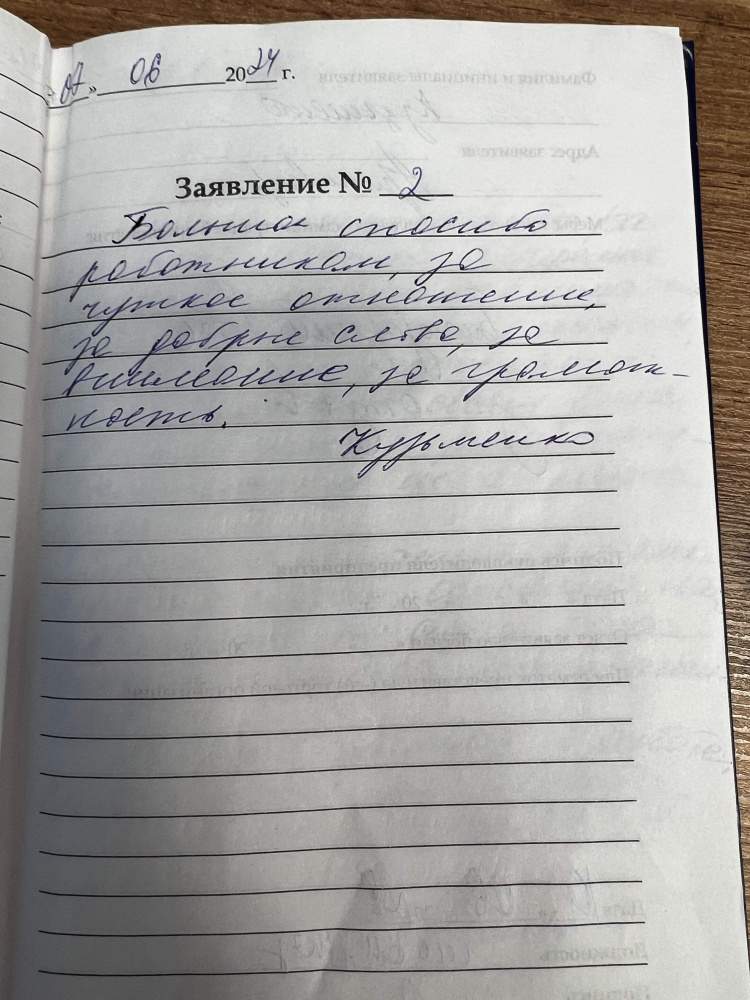 « 07 » 06 2024 г.
Заявление № 2
Большое спасибо
работникам, за
чуткое отношение,
за добрые слова, за
внимание, за грамот-
ность.
Кузьменко